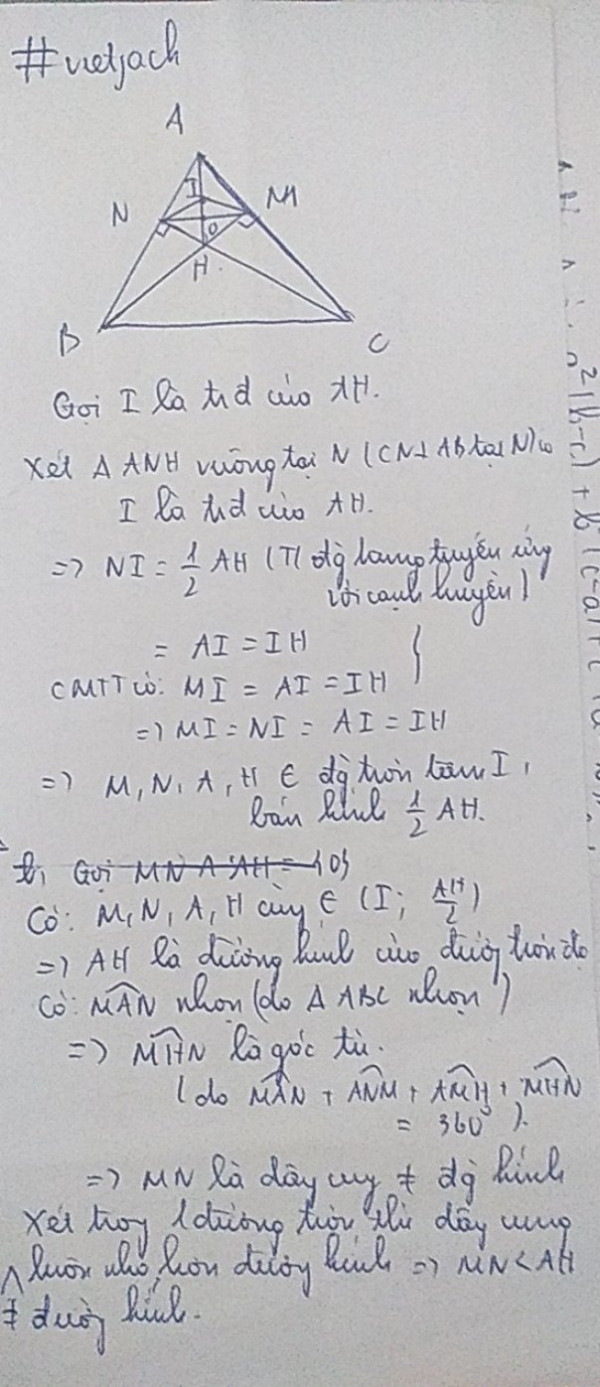 #vietjack
A
I
N
M
O
H
B
C
Gọi I là trđ của AH.
Xét Δ ANH vuông tại N (CN⊥AB tại N) có
I là trđ của AH.
=> NI = 1/2 AH (T/c đg trung tuyến ứng
với cạnh huyền)
= AI = IH
CMTT có: MI = AI = IH }
=> MI = NI = AI = IH
=> M, N, A, H ∈ đg tròn tâm I,
bán kính 1/2 AH.
b, Gọi MN ∩ AH = {O}
Có: M, N, A, H cùng ∈ (I; AH/2)
=> AH là đường kính của đường tròn đó
Có: MAN nhọn (do Δ ABC nhọn)
=> MHN là góc tù.
(do MAN + ANM + AMH + MHN
= 360° ).
=> MN là dây cung ≠ đg kính
Xét trong 1 đường tròn thì dây cung
luôn nhỏ hơn đường kính => MN < AH
≠ đường kính.
n²(b-c) + b
(c-a) + c